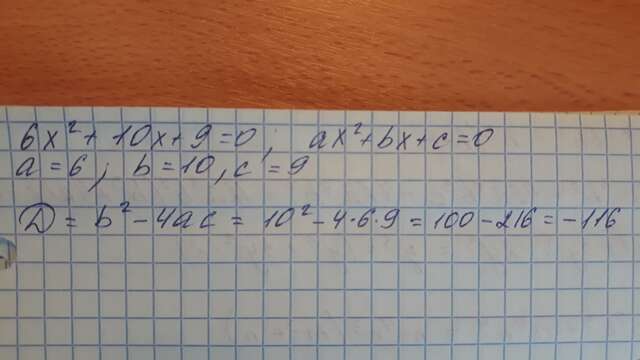 6x² + 10x + 9 = 0; ax² + bx + c = 0
a = 6; b = 10, c = 9
D = b² - 4ac = 10² - 4·6·9 = 100 - 216 = -116